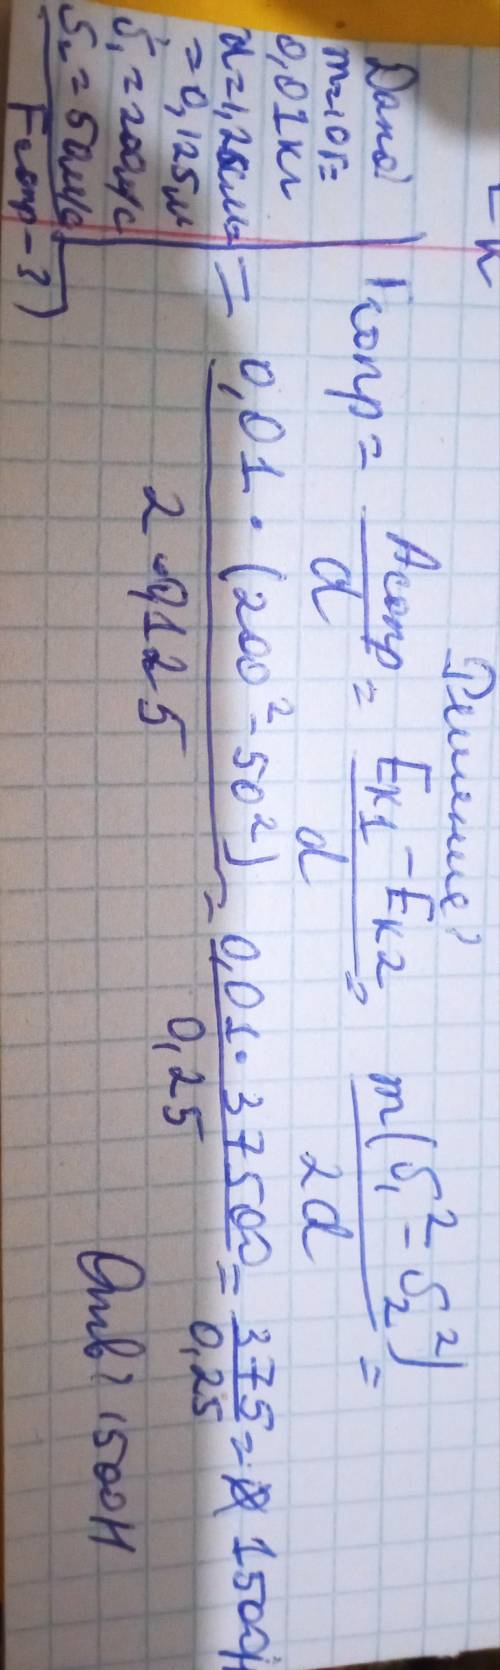 Дано:
m=10г=
0,01кг
d=1,25см
=0,125м
υ₁=200м/с
υ₂=50м/с
Fсопр-?
Решение:
Fсопр = Aсопр/d = Eк1 - Eк2/d = m(υ₁² - υ₂²)/2d =
= 0,01·(200² - 50²)/2·0,125 = 0,01·37500/0,25 = 375/0,25 = 1500Н
Отв: 1500Н